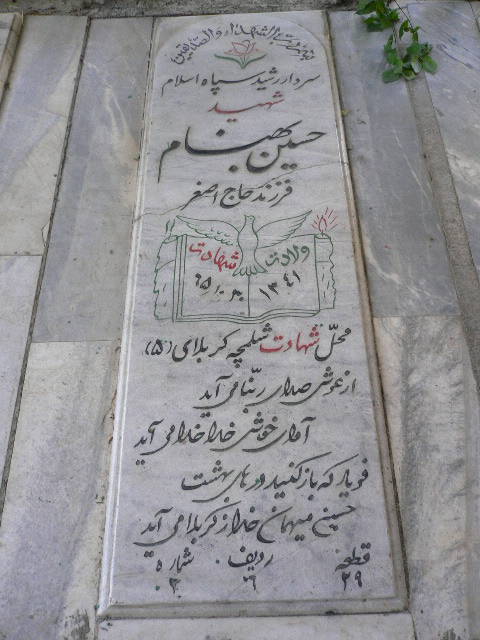 بسم رب الشهداء والصدیقین
سردار رشید سپاه اسلام
شهید
حسین بهنام
فرزند حاج اصغر
ولادت شهادت
۱۳۴۱
محلّ شهادت شلمچه کربلای (۵)
از عرش صدای ربّنا می آید
آوای خوش خدا خدا می آید
فریاد که باز کنید درهای بهشت
حسین میهمان خدا از کربلا می آید
قطعه ردیف شماره
۲۹ ۶ ۳